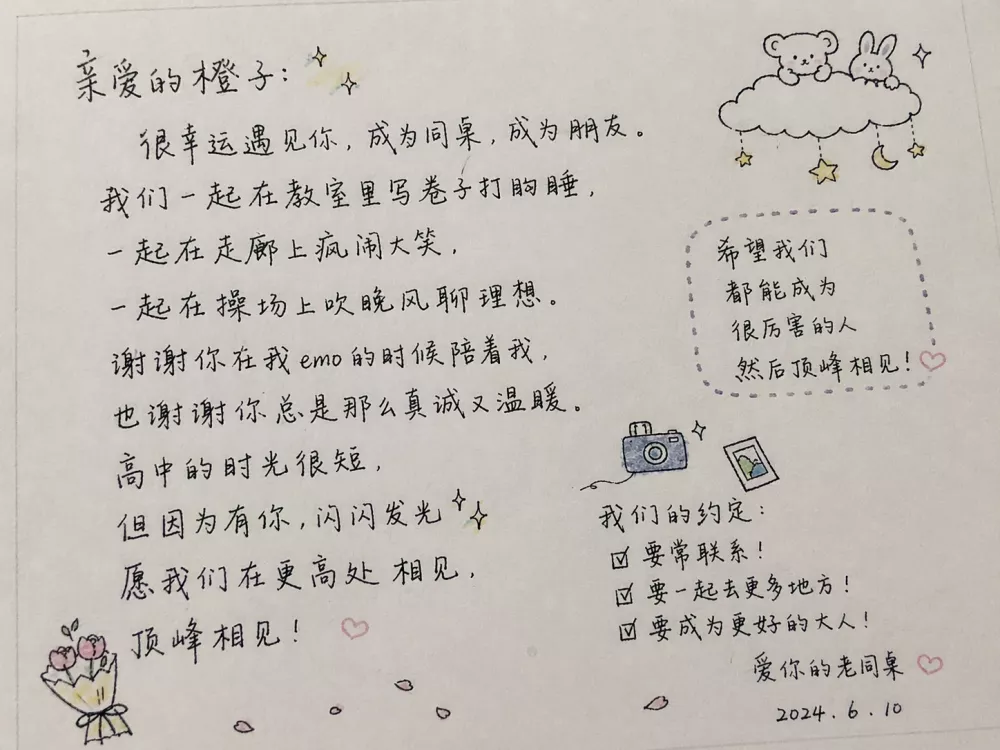 亲爱的橙子：
很幸运遇见你，成为同桌，成为朋友。
我们一起在教室里写卷子打瞌睡，
一起在走廊上疯闹大笑，
一起在操场上吹晚风聊理想。
谢谢你在我emo的时候陪着我，
也谢谢你总是那么真诚又温暖。
高中的时光很短，
但因为有你，闪闪发光
愿我们在更高处相见，
顶峰相见！
希望我们
都能成为
很厉害的人
然后顶峰相见！
我们的约定：
☑ 要常联系！
☑ 要一起去更多地方！
☑ 要成为更好的大人！
爱你的老同桌
2024.6.10